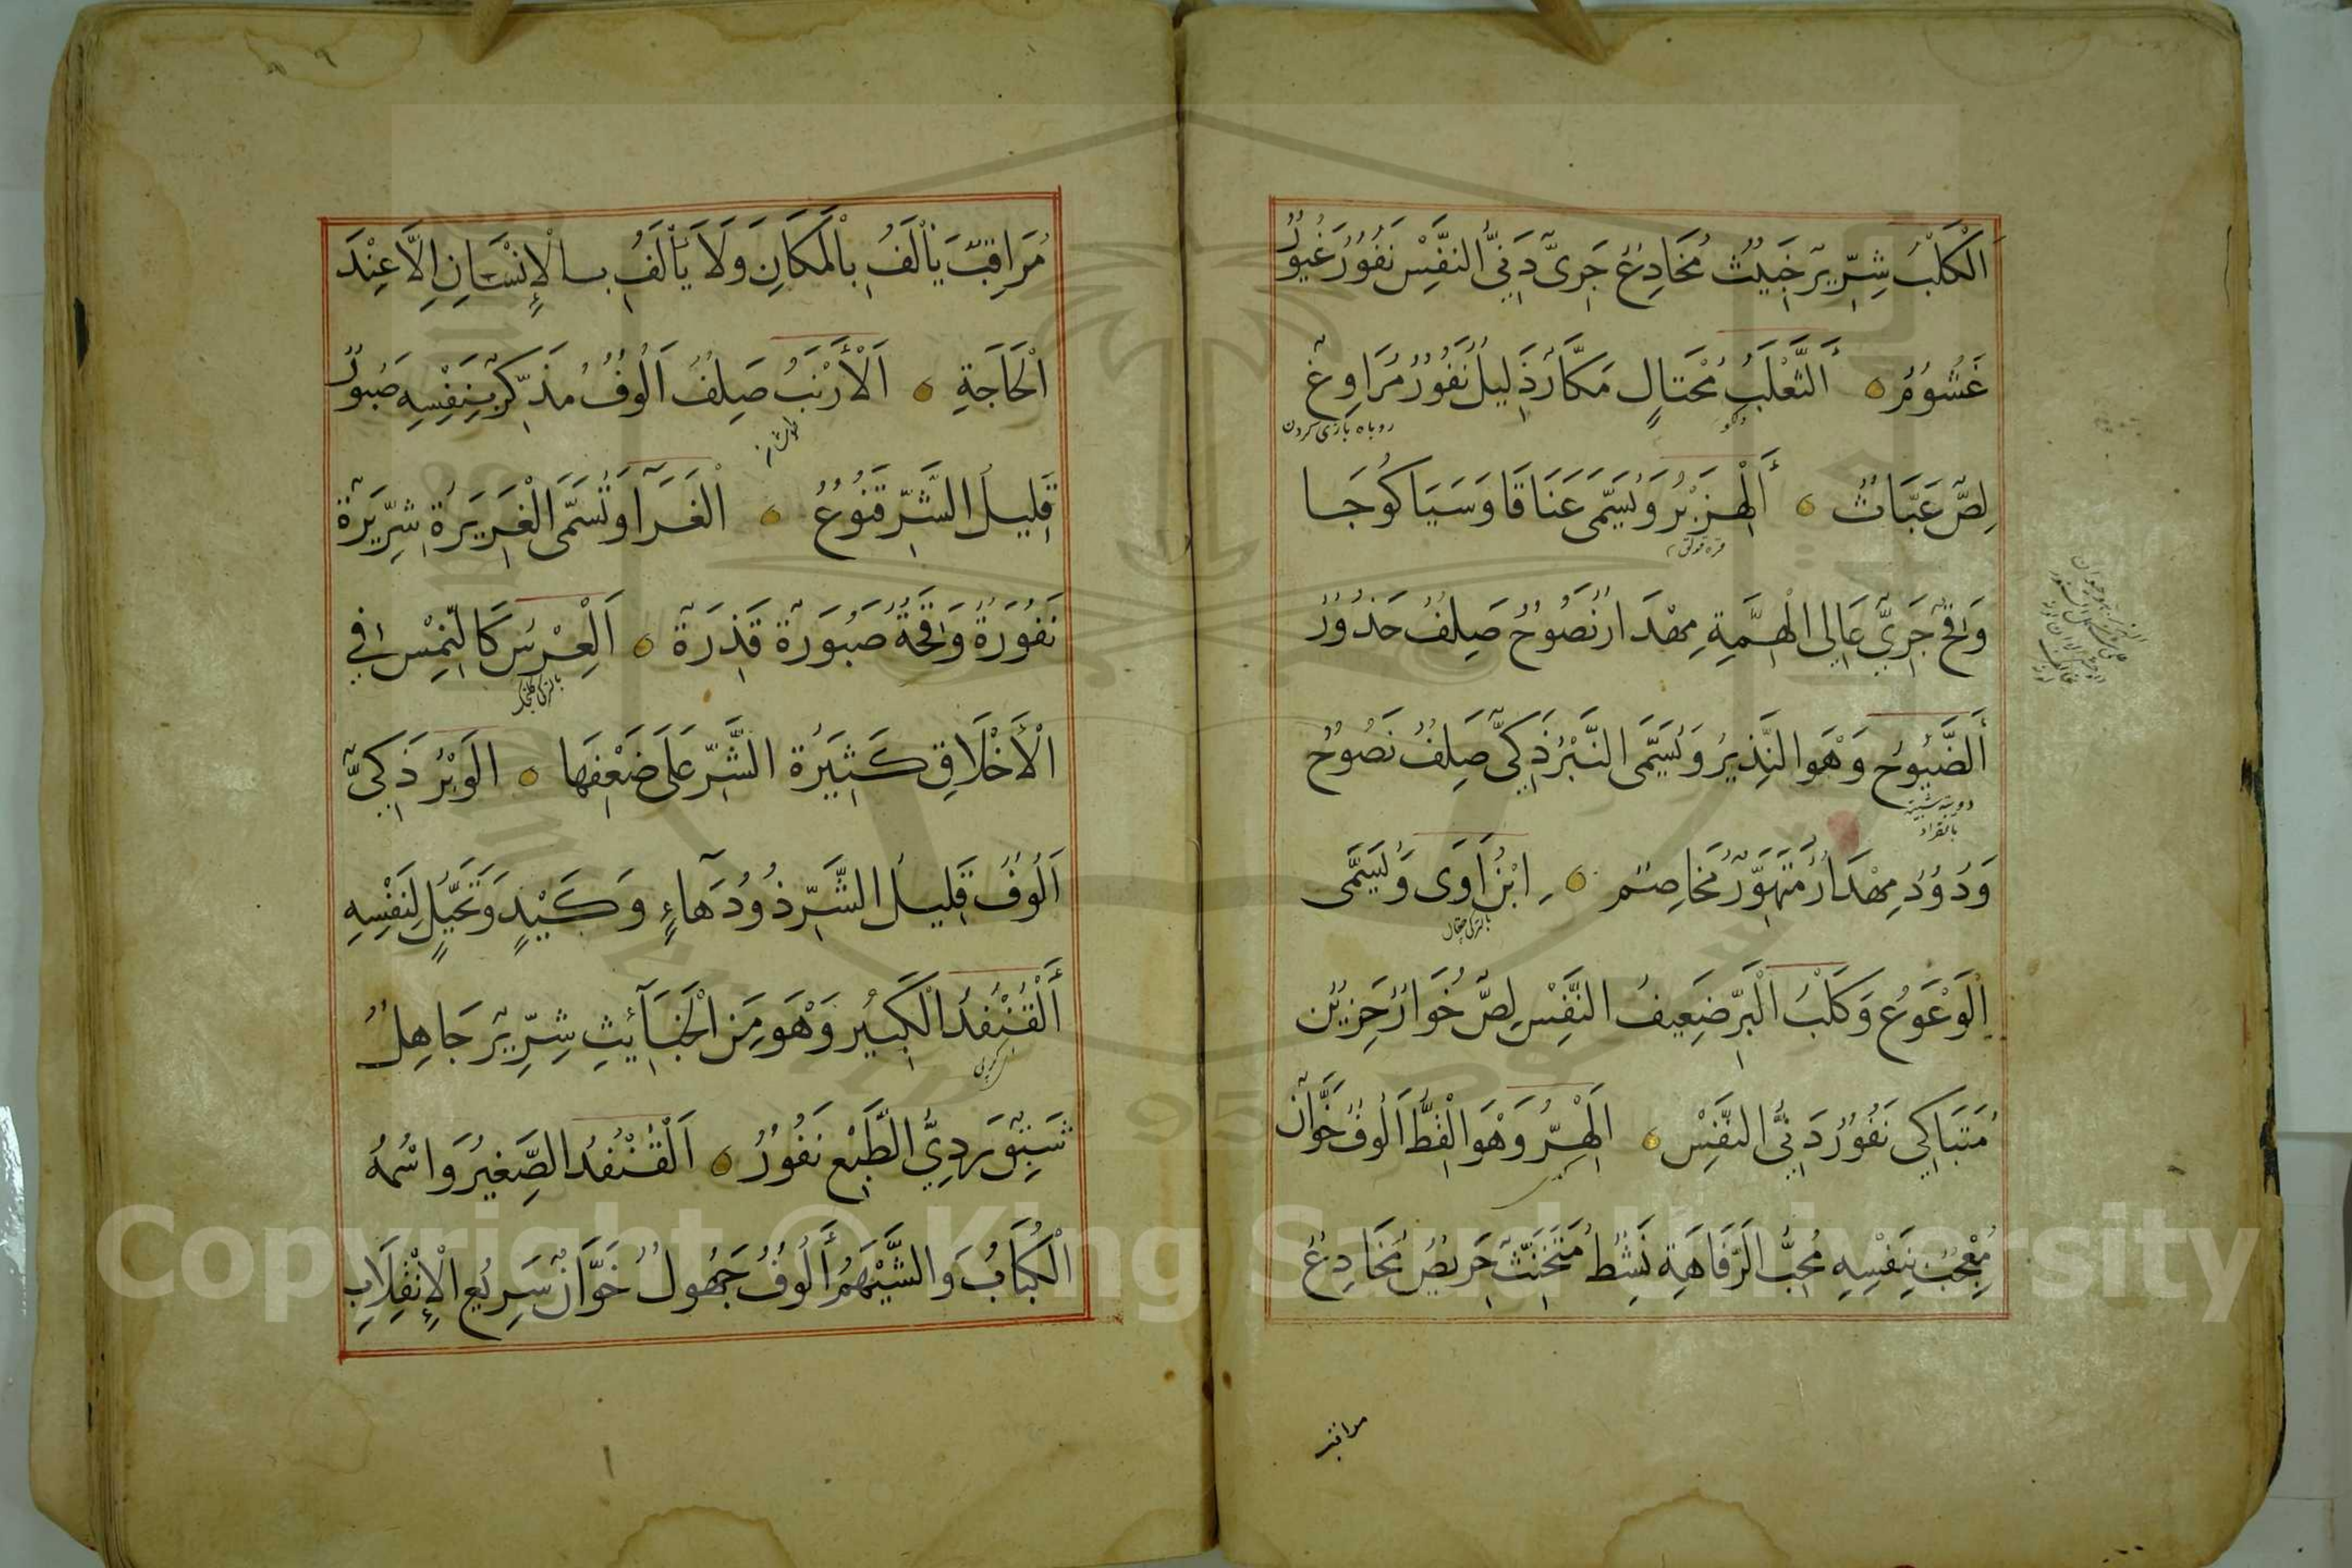 اَلْكَلْبُ شِرِّيرٌ خَبِيثٌ مُخَادِعٌ جَرِيٌّ دَنِيُّ النَّفْسِ نَفُورٌ غَيُورٌ
غَشُومٌ اَلثَّعْلَبُ مُحْتَالٍ مَكَّارٌ ذَلِيلٌ نَفُورٌ مُرَاوِغٌ
روباه بازی کردن
لِصٌّ عَبَّاثٌ اَلْهِزَبْرُ وَيُسَمَّى عَنَاقًا وَسَيَاكُوجَا
قره قولق
وَقِحٌ جَرِيٌّ عَالِي الْهِمَّةِ مِهْدَارٌ نَصُوحٌ صَلِفٌ حَذُورٌ
اَلضَّيُوحُ وَهْوَ النِّذِيرُ وَيُسَمَّى النَّبْرُ ذَكِيٌّ صَلِفٌ نَصُوحٌ
دويبة شبيهة بالقراد
وَدُودٌ مِهْدَارٌ مُتَهَوِّرٌ مُخَاصِمٌ اِبْنُ اٰوَى وَيُسَمَّى
بالتركي چقال
اَلْوَعْوَعُ وَكَلْبُ الْبَرِّ ضَعِيفُ النَّفْسِ لِصٌّ خُوَارٌ حَزِينٌ
مُتَبَاكِي نَفُورٌ دَنِيُّ النَّفْسِ اَلْهِرُّ وَهْوَ الْقِطُّ اَلُوفٌ خَوَّانٌ
مُعْجِبٌ بِنَفْسِهِ مُحِبُّ الرَّفَاهَةِ نَشِطٌ مُتَخَنِّثٌ حَرِيصٌ مُخَادِعٌ
مراقب
مُرَاقِبٌ يَأْلَفُ بِالْمَكَانِ وَلَا يَأْلَفُ بِالْإِنْسَانِ اِلَّا عِنْدَ
الْحَاجَةِ اَلْأَرْنَبُ صَلِفٌ اَلُوفٌ مُذَكِّرٌ بِنَفْسِهِ صَبُورٌ
طاوشان
قَلِيلُ الشَّرِّ قَنُوعٌ اَلْغَرَآ وَتُسَمَّى الْغَرِيرَةُ شِرِّيرَةٌ
نَفُورَةٌ وَقِحَةٌ صَبُورَةٌ قَذِرَةٌ اَلْعِرْسُ كَالنِّمْسِ فِي
بالتركي كلنجك
الْأَخْلَاقِ كَثِيرَةُ الشَّرِّ عَلَى ضَعْفِهَا اَلْوَبْرُ ذَكِيٌّ
اَلُوفٌ قَلِيلُ الشَّرِّ ذُو دَهَآءٍ وَكَيْدٍ وَتَحَيُّلٍ لِنَفْسِهِ
اَلْقُنْفُذُ الْكَبِيرُ وَهْوَ مِنَ الْخَبَآئِثِ شِرِّيرٌ جَاهِلٌ
شَبِقٌ رَدِيُّ الطَّبْعِ نَفُورٌ اَلْقُنْفُذُ الصَّغِيرُ وَاسْمُهُ
الْكُبَابُ وَالشَّيْهَمُ أَلُوفٌ جَهُولٌ خَوَّانٌ سَرِيعُ الْإِنْقِلَابِ
Copyright © King Saud University